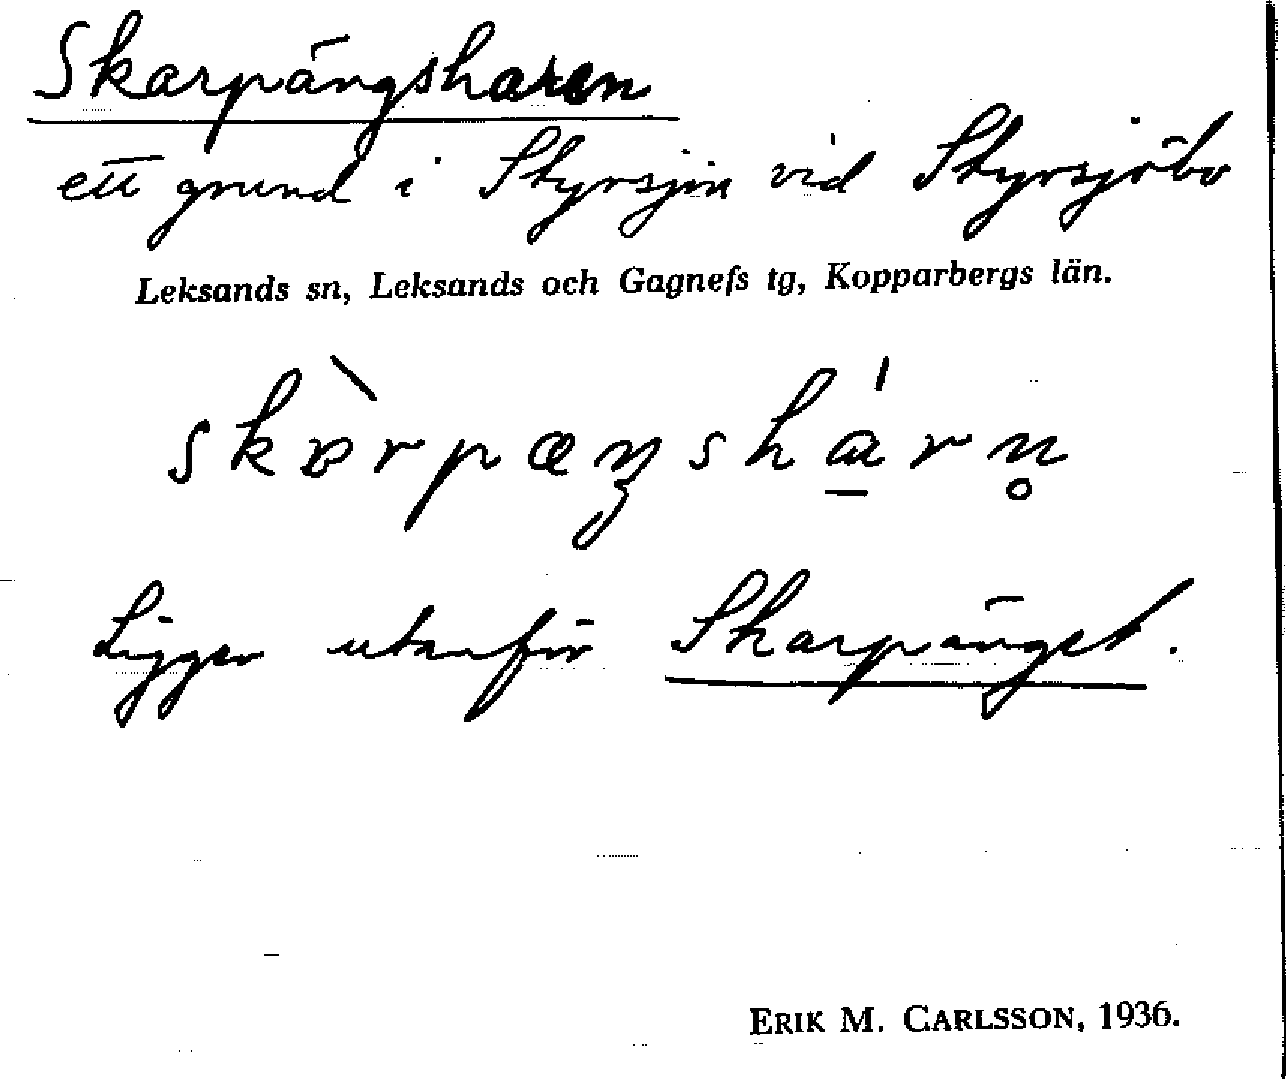 Skarpängsharen
ett grund i Styrsjön vid Styrsjöbo
Leksands sn, Leksands och Gagnefs tg, Kopparbergs län.
skɒ̀rpæŋshá̱rn̥
Ligger utanför Skarpänget.
ERIK M. CARLSSON, 1936.